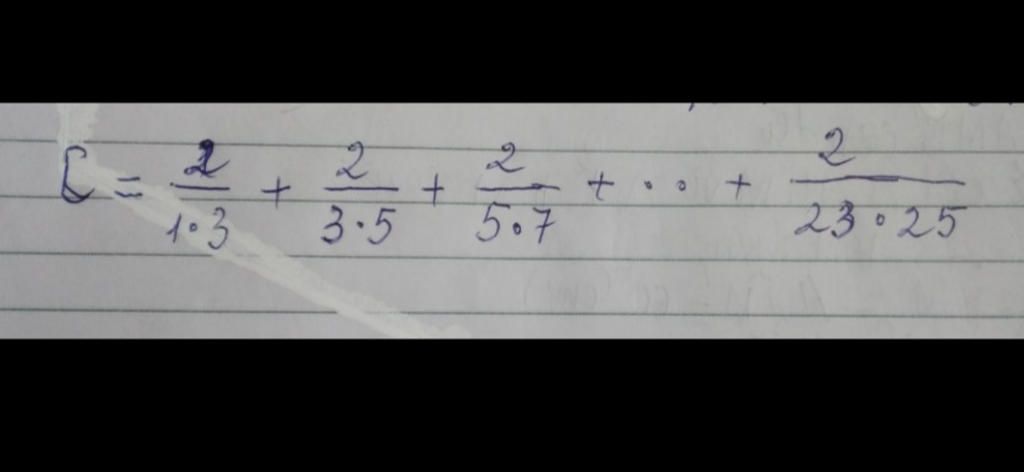 C = 2/1·3 + 2/3·5 + 2/5·7 + ·· + 2/23·25